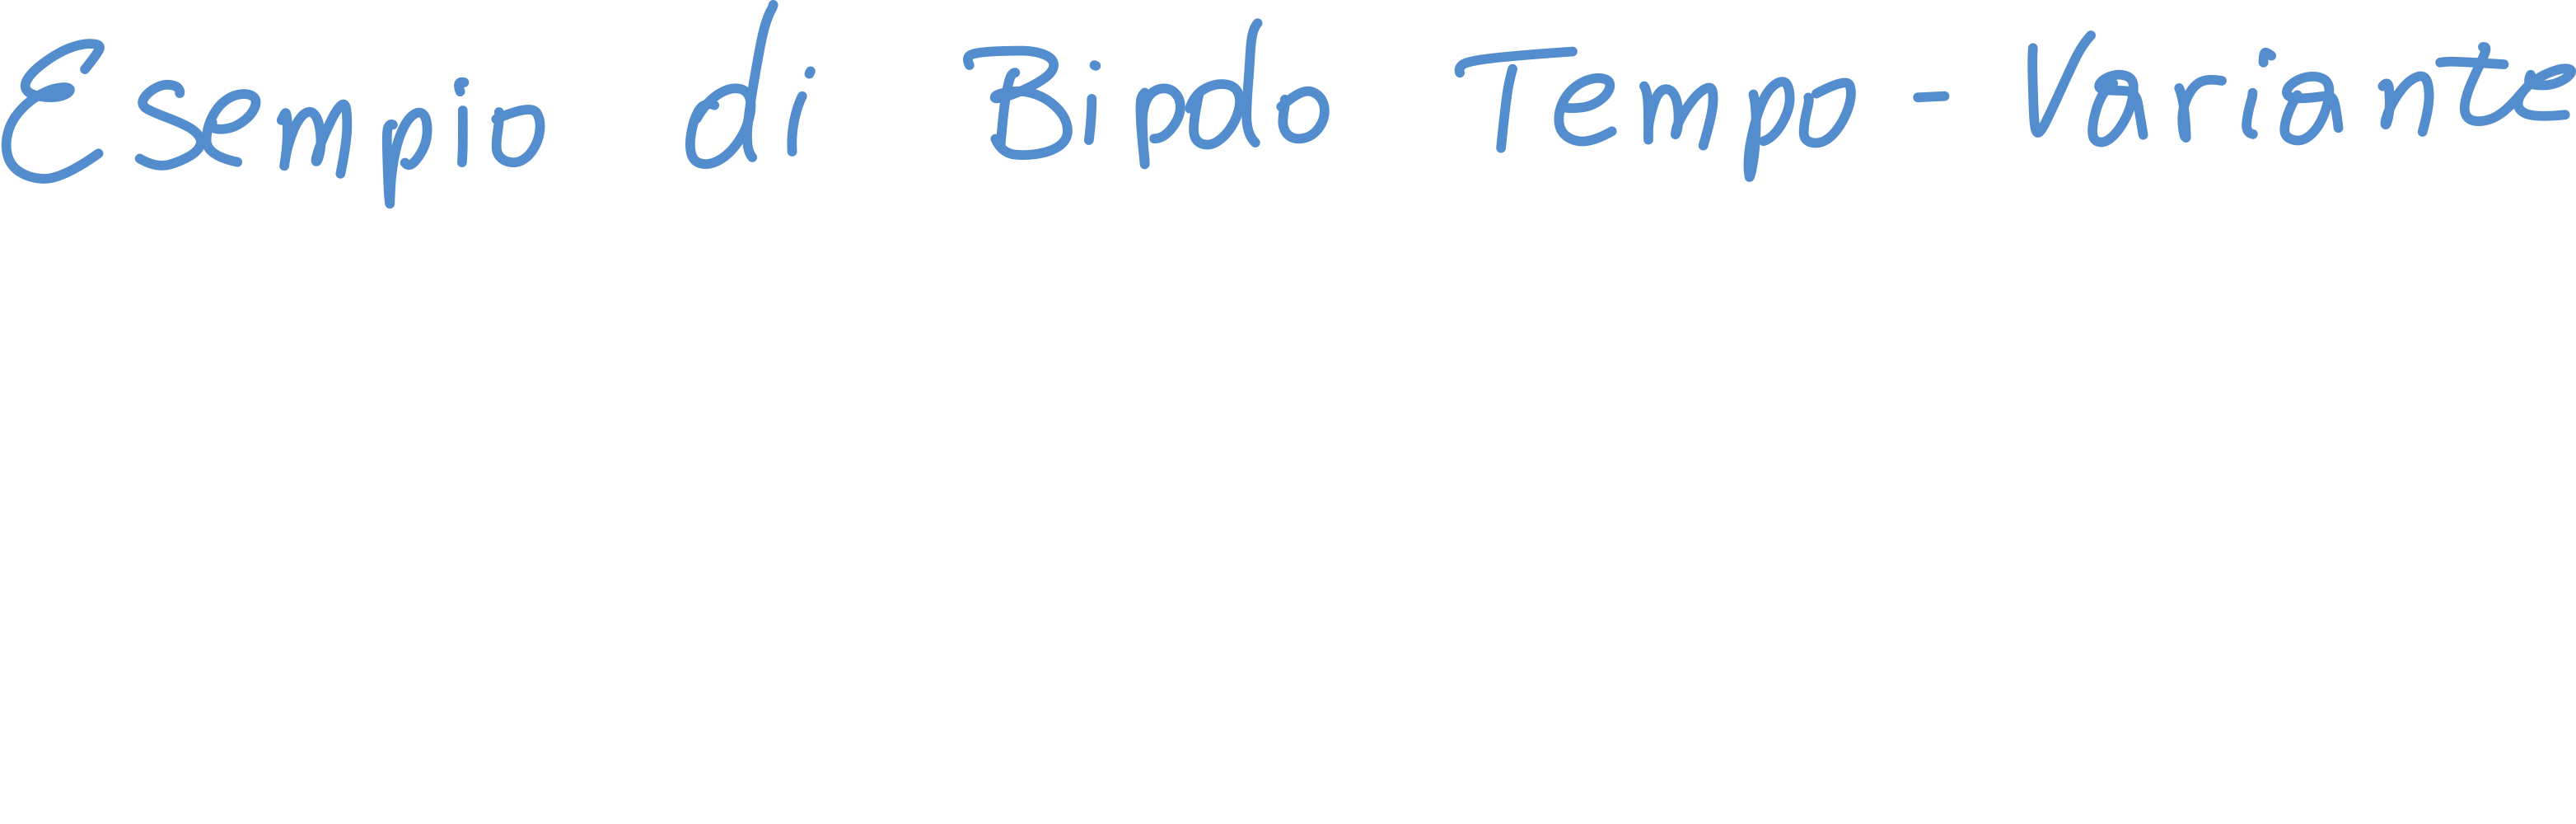 Esempio di Bipdo Tempo-Variante